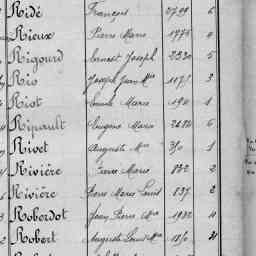 Ridé François 2729 6
Rieux Pierre Marie 1775 4
Rigourd Ernest Joseph 2330 5
Rio Joseph Jean Mie 1171 3
Riot Louis Marie 190 1
Ripault Eugène Marie 2684 6
Rivet Auguste Mie 30 1
Rivière Pierre Marie 832 2
Rivière Pierre Marie Louis 837 2
Roberdot Jean Pierre Mie 1932 4
Robert Auguste Louis Mie